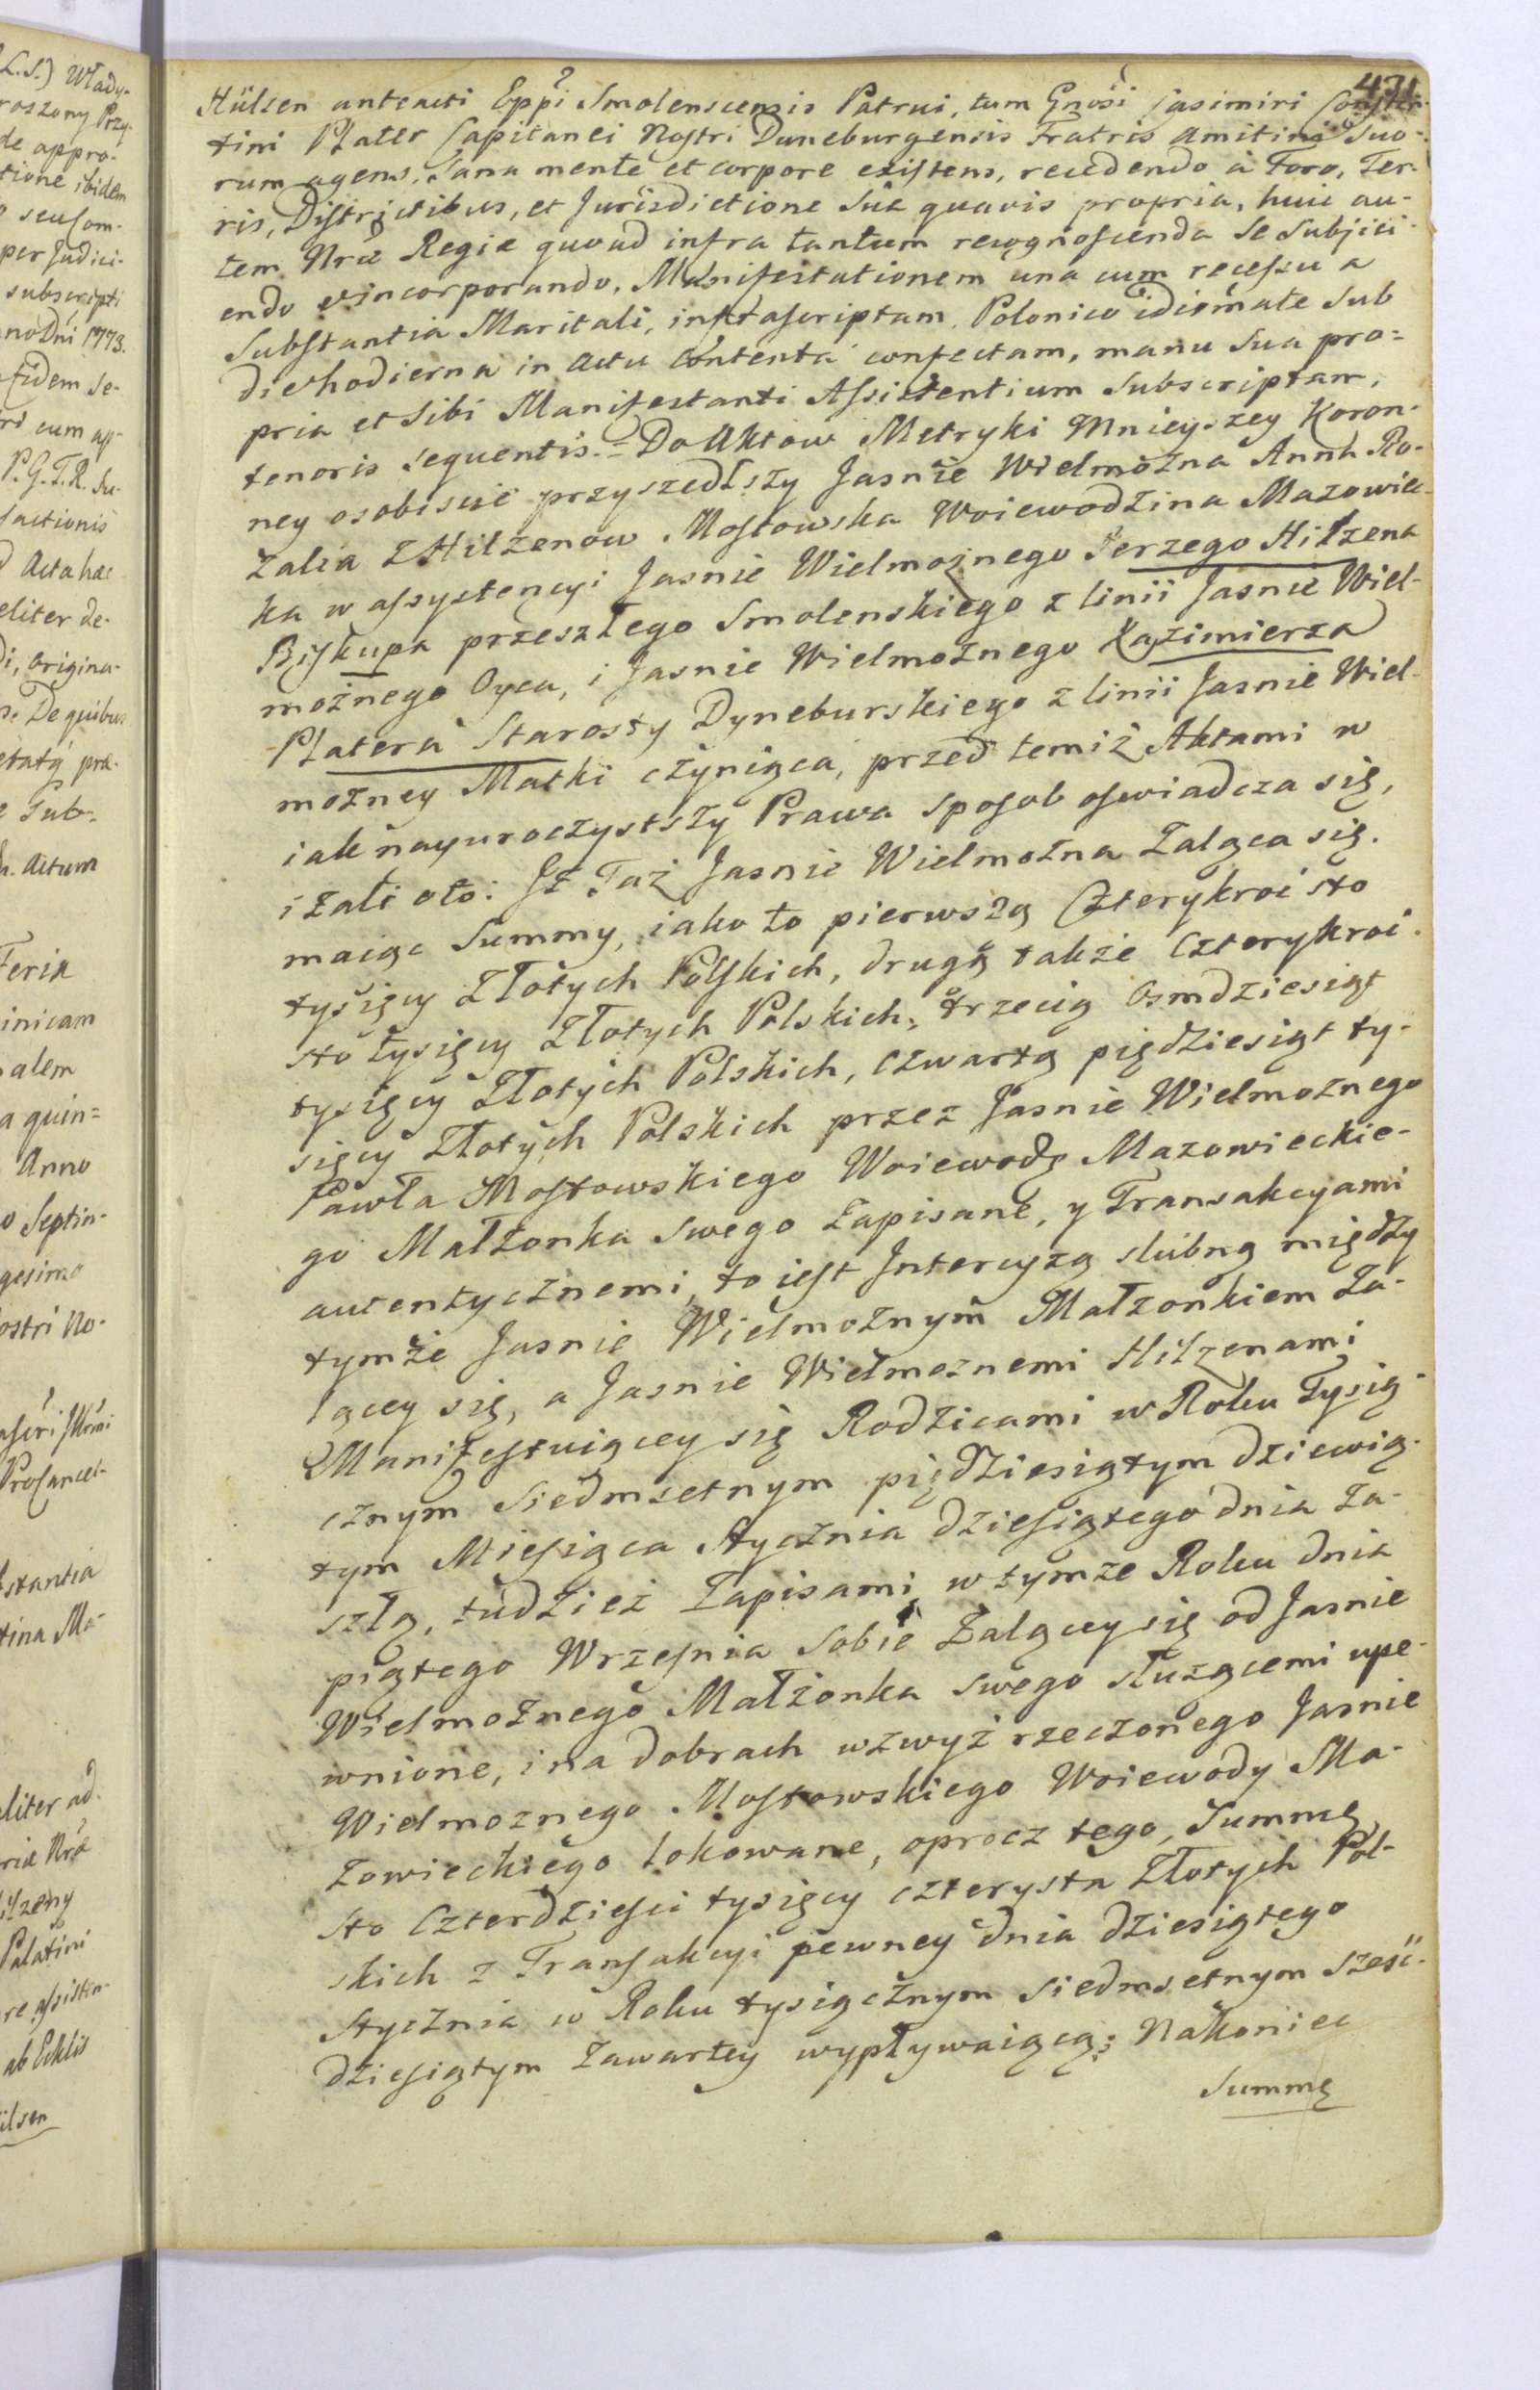 471
Hülsen anteacti Eppi Smolenscensis Patrui, tum Gnosi Casimiri Constan-
tini Plater Capitanei Nostri Duneburgensis Fratris Amitini Suo-
rum agens, Sana mente et corpore existens, recedendo à Foro, Ter-
ris, Districtibus, et Jurisdictione Suâ quavis propria, huic au-
tem Nrae Regiae quoad infra tantum recognoscenda Se Subjici-
endo et incorporando, Manifestationem una cum recessu a
Substantia Maritali, infrascriptam, Polonico idiomate Sub
die hodierna in Actu contenta confectam, manu Sua pro=
pria et Sibi Manifestanti Assistentium Subscriptam,
tenoris sequentis.= Do Aktow Metryki Mnieyszey Koron-
ney osobiscie przyszedłszy Jasnie Wielmożna Anna Ro-
zalia z Hilzenow Mostowska Woiewodzina Mazowiec-
ka w assystencyi Jasnie Wielmożnego Jerzego Hilzena
Biskupa przeszłego Smolenskiego z linii Jasnie Wiel-
możnego Oyca, i Jasnie Wielmożnego Kazimierza
Platera Starosty Dyneburskiego z linii Jasnie Wiel-
możney Matki czyniąca, przed temiż Aktami w
iak nayuroczystszy Prawa sposob oswiadcza się,
i żali oto: Iż Taż Jasnie Wielmożna Żaląca się.
maiąc Summy, iako to pierwszą Czterykroć sto
tysięcy Złotych Polskich, drugą także Czterykroć
sto tysięcy Złotych Polskich, trzecią Osmdziesiąt
tysięcy Złotych Polskich, czwartą piędziesiąt ty-
sięcy Złotych Polskich przez Jasnie Wielmożnego
Pawła Mostowskiego Woiewodę Mazowieckie-
go Małżonka swego zapisane, y Transakcyami
autentycznemi, to iest Intercyzą slubną między
tymże Jasnie Wielmożnym Małżonkiem Ża-
lącey się, a Jasnie Wielmożnemi Hilzenami
Manifestuiącey się Rodzicami w Roku Tysią-
cznym Siedmsetnym pięździesiątym dziewią-
tym Miesiąca Stycznia dziesiątego dnia za-
szłą, tudzież Zapisami, w tymże Roku dnia
piątego Wrzesnia Sobie Żalącey się od Jasnie
Wielmożnego Małżonka swego służącemi upe-
wnione, i na dobrach wzwyż rzeczonego Jasnie
Wielmożnego Mostowskiego Woiewody Ma-
zowieckiego lokowane, oprocz tego, Summę
Sto Czterdziesci tysięcy czterysta Złotych Pol-
skich z Transakcyi pewney dnia dziesiątego
Stycznia w Roku tysiącznym siedmsetnym szesć-
dziesiątym zawartey wypływaiącą; Nakoniec
Summę